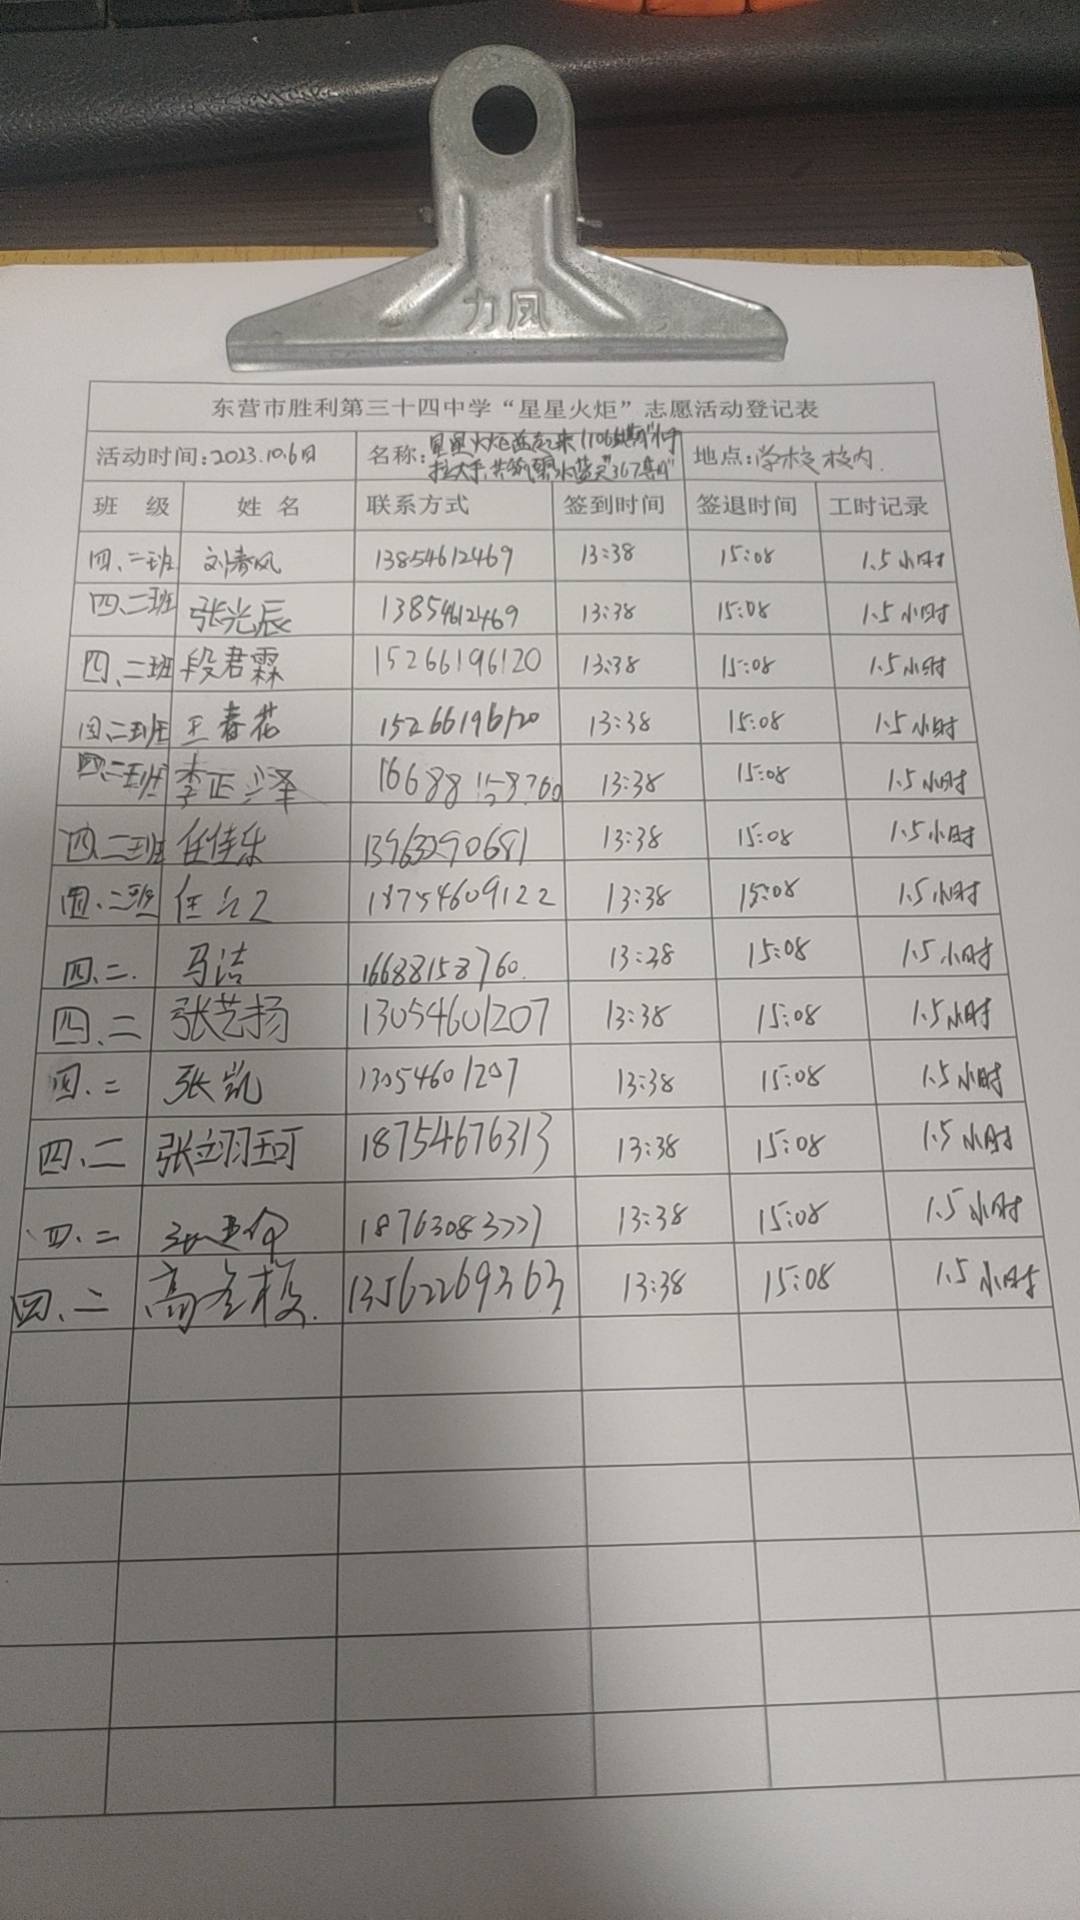 力风
东营市胜利第三十四中学“星星火炬”志愿活动登记表
活动时间:2023.10.6日 名称:星星火炬益起来1106期"小手 地点:学校校内.
拉大手,共筑碧水蓝天367期"
班 级 姓 名 联系方式 签到时间 签退时间 工时记录
四、二班 刘春风 13854612469 13:38 15:08 1.5小时
四、二班 张光辰 13854612469 13:38 15:08 1.5小时
四、二班 段君霖 15266196120 13:38 15:08 1.5小时
四、二班 王春花 15266196120 13:38 15:08 1.5小时
四、二班 李正泽 16688158760 13:38 15:08 1.5小时
四、二班 任佳乐 13963290681 13:38 15:08 1.5小时
四、二班 任 18754609122 13:38 15:08 1.5小时
四、二. 马洁 16688158760. 13:38 15:08 1.5小时
四、二 张艺扬 13054601207 13:38 15:08 1.5小时
四、二 张凯 13054601207 13:38 15:08 1.5小时
四、二 张翊珂 18754676313 13:38 15:08 1.5小时
四、二 13:38 15:08 1.5小时
四、二 高 13562269363 13:38 15:08 1.5小时